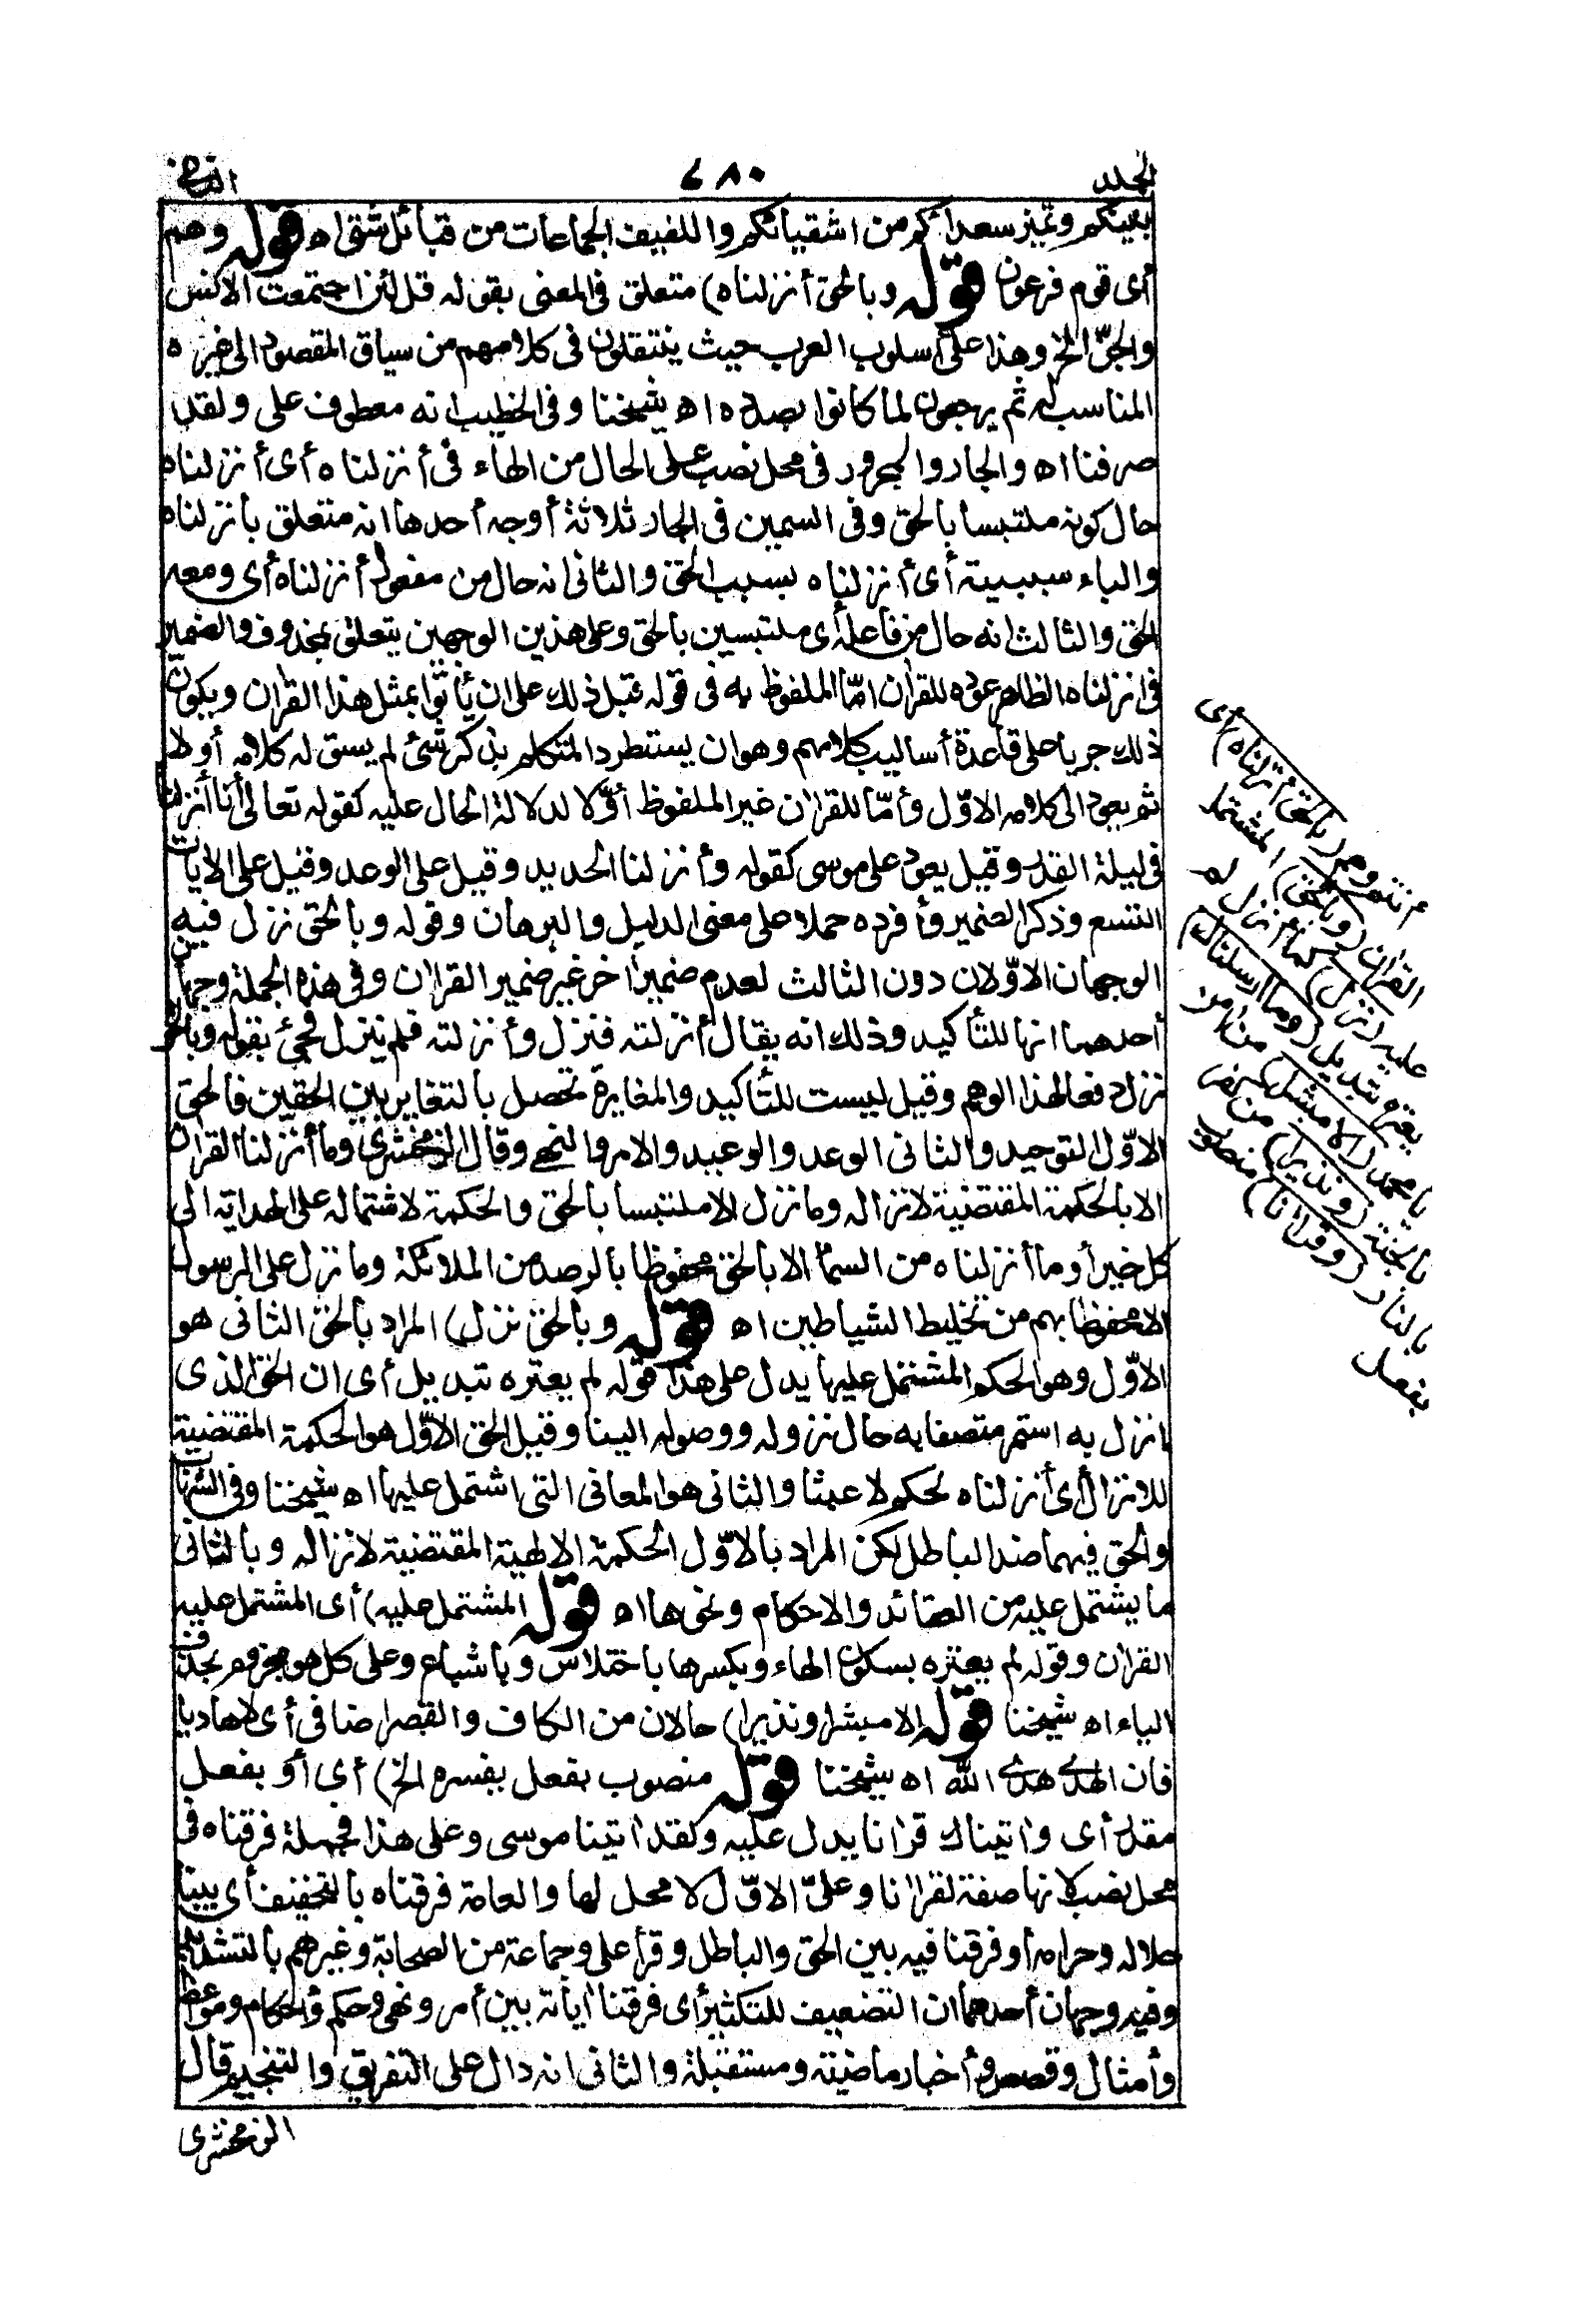 المجلد ٦٨٠ الثاني
بينكم وتميز سعداءكم من اشقيائكم واللفيف الجماعات من قبائل شتى اه قوله وهم
أى قوم فرعون قوله وبالحق أنزلناه) متعلق فى المعنى بقوله قل لئن اجتمعت الانس
والجنّ الخ وهذا على أسلوب العرب حيث ينتقلون فى كلامهم من سياق المقصود الى غيره
المناسب له ثم يرجعون لما كانوا بصدده اه شيخنا وفى الخطيب انه معطوف على ولقد
صرفنا اه والجار والمجرور فى محل نصب على الحال من الهاء فى أنزلناه أى أنزلناه
حال كونه ملتبسا بالحق وفى السمين فى الجار ثلاثة أوجه أحدها انه متعلق بأنزلناه
والباء سببية أى أنزلناه بسبب الحق والثانى انه حال من مفعول أنزلناه أى ومعه
الحق والثالث انه حال من فاعله أى ملتبسين بالحق وعلى هذين الوجهين يتعلق بمحذوف والضمير
فى انزلناه الظاهر عوده للقرآن امّا الملفوظ به فى قوله قبل ذلك على ان يأتوا بمثل هذا القرآن ويكون
ذلك جريا على قاعدة أساليب كلامهم وهو ان يستطرد المتكلم بذكر شئ لم يسق له كلامه أولا
ثم يعود الى كلامه الاوّل وأمّا للقرآن غير الملفوظ أوّلا لدلالة الحال عليه كقوله تعالى أنا أنزلناه
فى ليلة القدر وقيل يعود على موسى كقوله وأنزلنا الحديد وقيل على الوعد وقيل على الآيات
التسع وذكر الضمير وأفرده حملا على معنى الدليل والبرهان وقوله وبالحق نزل فيه
الوجهان الاوّلان دون الثالث لعدم ضمير آخر غير ضمير القرآن وفى هذه الجملة وجهان
أحدهما انها للتأكيد وذلك انه يقال أنزلته فنزل وأنزلته فلم ينزل فجئ بقوله وبالحق
نزل دفعا لهذا الوهم وقيل ليست للتأكيد والمغايرة تحصل بالتغاير بين الحقين فالحق
الاوّل التوحيد والثانى الوعد والوعيد والامر والنهى وقال الزمخشرى وما أنزلنا القرآن
الا بالحكمة المقتضية لانزاله وما نزل الا ملتبسا بالحق والحكمة لاشتماله على الهداية الى
كل خير أو ما أنزلناه من السماء الا بالحق محفوظا بالرصد من الملائكة وما نزل على الرسول
الا محفوظا بهم من تخليط الشياطين اه قوله وبالحق نزل) المراد بالحق الثانى هو
الاوّل وهو الحكم المشتمل عليها يدل على هذا قوله لم يعتره تبديل أى ان الحق الذى
انزل به استمر متصفا به حال نزوله ووصوله الينا وقيل الحق الاوّل هو الحكمة المقتضية
للانزال أى أنزلناه لحكم لا عبثا والثانى هو المعانى التى اشتمل عليها اه شيخنا وفى الشهاب
والحق فيهما ضد الباطل لكن المراد بالاوّل الحكمة الالهية المقتضية لانزاله وبالثانى
ما يشتمل عليه من العقائد والاحكام ونحوها اه قوله المشتمل عليه) أى المشتمل عليه
القرآن وقوله لم يعتره بسكون الهاء وبكسرها باختلاس وباشباع وعلى كل هو مجزوم بحذف
الياء اه شيخنا قوله الا مبشرا ونذيرا) حالان من الكاف والقصر اضافى أى لا هاديا
فان الهدى هدى الله اه شيخنا قوله منصوب بفعل يفسره الخ) أى أو بفعل
مقدر أى وآتيناك قرآنا يدل عليه ولقد آتينا موسى وعلى هذا فجملة فرقناه فى
محل نصب لانها صفة لقرآنا وعلى الاوّل لا محل لها والعامة فرقناه بالتخفيف أى بينا
حلاله وحرامه أو فرقنا فيه بين الحق والباطل وقرأ على وجماعة من الصحابة وغيرهم بالتشديد
وفيه وجهان أحدهما ان التضعيف للتكثير أى فرقنا آياته بين أمر ونهى وحكم وأحكام ومواعظ
وأمثال وقصص وأخبار ماضية ومستقبلة والثانى انه دال على التفريق والتنجيم قال
الزمخشرى
وبالحق أنزلناه) أى
القرآن (وبالحق) المشتمل
عليه (نزل) كما نزل لم
يعتره تبديل (وما أرسلناك)
يا محمد (الا مبشرا) من آمن
بالجنة (ونذيرا) من كفر
بالنار (وقرآنا) منصوب
بفعل